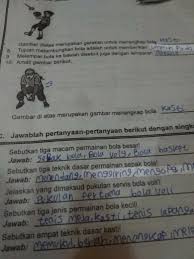 Gambar diatas merupakan gerakan untuk menangkap bola kasti
8. Tujuan melambungkan bola adalah untuk memberikan
9. Melempar bola ke sasaran disebut juga dengan lemparan
10. Amati gambar berikut.
Gambar di atas merupakan gerakan menangkap bola kasti
C. Jawablah pertanyaan-pertanyaan berikut dengan singkat
Sebutkan tiga macam permainan bola besar!
Jawab: Sepak bola, Bola voly, Bola basket
Sebutkan tiga teknik dasar permainan bola besar!
Jawab: menendang, menggiring, mengoping
Jelaskan yang dimaksud pukulan servis dalam voli!
Jawab: Pukulan pertama bola voli
Sebutkan tiga jenis permainan bola kecil!
Jawab: tenis meja, kasti, tenis lapangan
Sebutkan empat teknik dasar kasti!
Jawab: memukul, menangkap